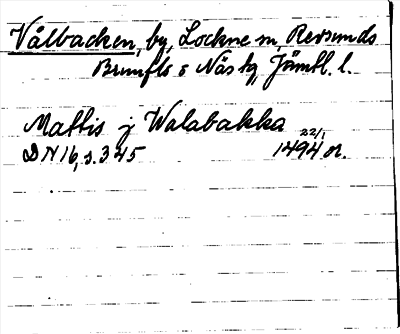 Vålbacken, by, Lockne sn, Revsunds
Brunflo o Näs tg, Jämtl. l.
Mattis j Walabakka 22/1
DN 16, s. 345 1494 or.